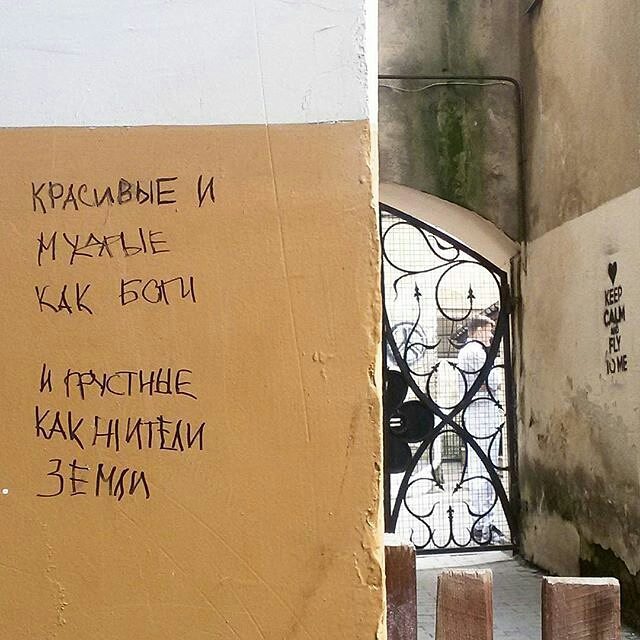 КРАСИВЫЕ И
МУДРЫЕ
КАК БОГИ
И ГРУСТНЫЕ
КАК ЖИТЕЛИ
ЗЕМЛИ
KEEP
CALM
AND
FLY
TO ME